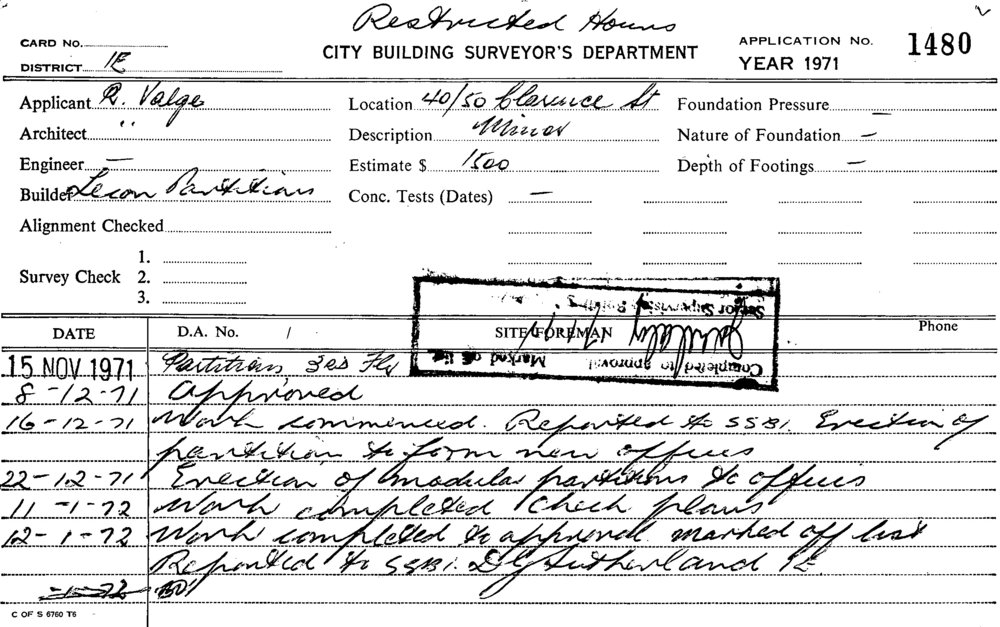 Restricted Hours
CARD No.
CITY BUILDING SURVEYOR'S DEPARTMENT
APPLICATION No. 1480
DISTRICT 1E
YEAR 1971
Applicant R. Valge
Location 40/50 Clarence St
Foundation Pressure —
Architect "
Description Minor
Nature of Foundation —
Engineer —
Estimate $ 1500
Depth of Footings —
Builder Lecon Partitions
Conc. Tests (Dates) —
Alignment Checked
Survey Check 1.
2.
3.
DATE
D.A. No. /
SITE FOREMAN
Phone
Completed to approval Marked off list
Senior Supervising Building
15 NOV 1971 Partitions 3rd Flr
8-12-71 Approved
16-12-71 Work commenced. Reported to SSBI. Erection of
partition to form new offices
22-12-71 Erection of modular partitions to offices
11-1-72 Work completed Check plans
12-1-72 Work completed to approval marked off list
Reported to SSBI. D G Sutherland 1E
C OF S 6760 T6